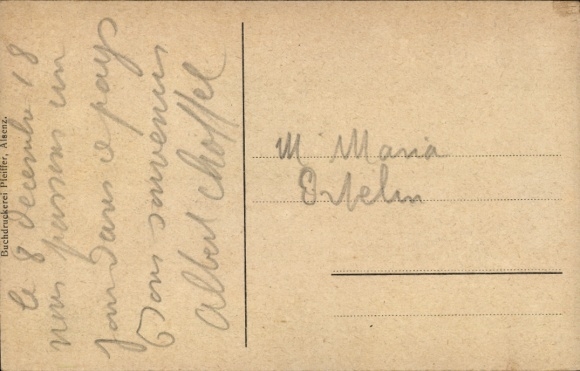 Buchdruckerei Pfeiffer, Alsenz.
le 8 decembre 18
nous passons un
jour dans ce pays
Bons souvenirs
Albert Choffel
M Maria